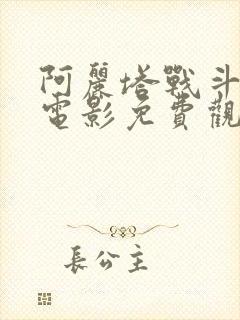 阿麗塔戰斗
電影免費觀
長公主